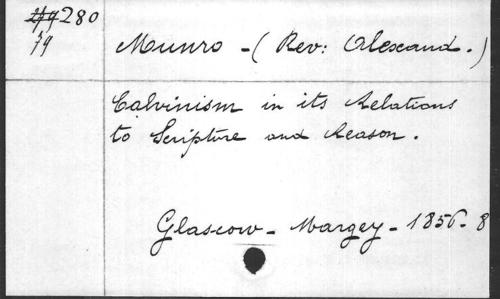 280
59
Munro - (Rev: Alexand.)
Calvinism in its Relations
to Scripture and Reason.
Glascow - Margey - 1856. 8